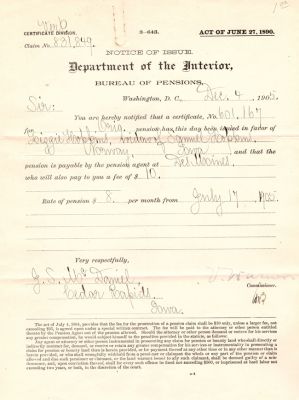 CERTIFICATE DIVISION.
3—643.
ACT OF JUNE 27, 1890.
Claim No. 831,849
NOTICE OF ISSUE.
Department of the Interior,
BUREAU OF PENSIONS,
Washington, D. C., Dec 4, 1905.
Sir:
You are hereby notified that a certificate, No. 601,167
for Orig. pension has this day been issued in favor of
Lizzie Hopkins, widow of Samuel Hopkins,
Norway, Iowa and that the
pension is payable by the pension agent at Des Moines
who will also pay to you a fee of $ 10.
Rate of pension $ 8 per month from July 17, 1905.
Very respectfully,
J. S. McDaniel
Cedar Rapids
Iowa
Commissioner.
The act of July 4, 1884, provides that the fee for the prosecution of a pension claim shall be $10 only, unless a larger fee, not
exceeding $25, is agreed upon under a special written contract. The fee will be paid to the attorney or other person entitled
thereto by the Pension Agent out of the pension allowed. Should the attorney or other person demand or retain for his services
any greater compensation, he would subject himself to the penalties provided in the statute, as follows:
Any agent or attorney or other person instrumental in prosecuting any claim for pension or bounty land who shall directly or
indirectly contract for, demand, or receive or retain any greater compensation for his services or instrumentality in prosecuting a
claim for pension or bounty land than is herein provided, or for payment thereof at any other time or in any other manner than is
herein provided, or who shall wrongfully withhold from a pensioner or claimant the whole or any part of the pension or claim
allowed and due such pensioner or claimant, or the land warrant issued to any such claimant, shall be deemed guilty of a mis-
demeanor, and, upon conviction thereof, shall for every such offense be fined not exceeding $500, or imprisoned at hard labor not
exceeding two years, or both, in the discretion of the court.